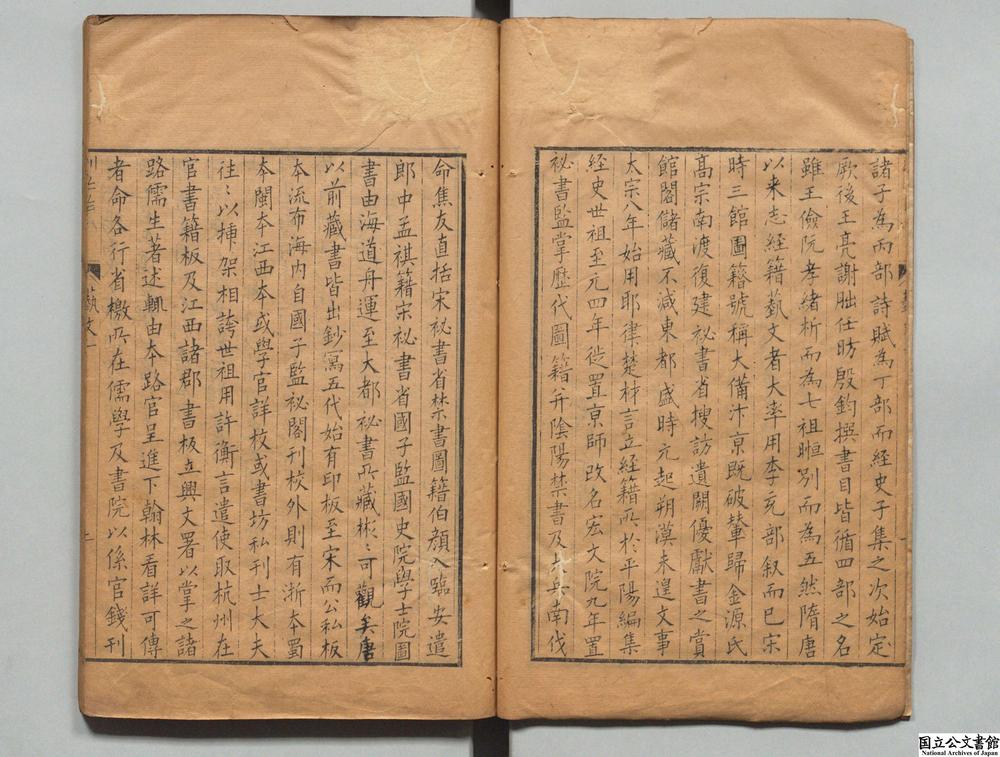 諸子為丙部詩賦為丁部而経史子集之次始定
厥後王亮謝朏任昉殷鈞撰書目皆循四部之名
雖王儉阮孝緒析而為七祖暅別而為五然隋唐
以来志経籍藝文者大率用李充部叙而已宋
時三館圖籍號稱大備汴京既破輦歸金源氏
髙宗南渡復建祕書省搜訪遺闕優獻書之賞
館閣儲藏不減東都盛時元起朔漠未遑文事
太宗八年始用耶律楚材言立経籍所於平陽編集
経史世祖至元四年徙置京師改名宏文院九年置
祕書監掌歴代圖籍并陰陽禁書及大兵南伐
命焦友直括宋祕書省禁書圖籍伯顔入臨安遣
郎中孟祺籍宋祕書省國子監國史院學士院圖
書由海道舟運至大都祕書所藏彬〻可觀矣唐
以前藏書皆出鈔寫五代始有印板至宋而公私板
本流布海内自國子監祕閣刊校外則有浙本蜀
本閩本江西本或學官詳校或書坊私刊士大夫
往〻以揷架相誇世祖用許衡言遣使取杭州在
官書籍板及江西諸郡書板立興文署以掌之諸
路儒生著述輒由本路官呈進下翰林看詳可傳
者命各行省檄所在儒學及書院以係官錢刊
藝文一
国立公文書館
National Archives of Japan